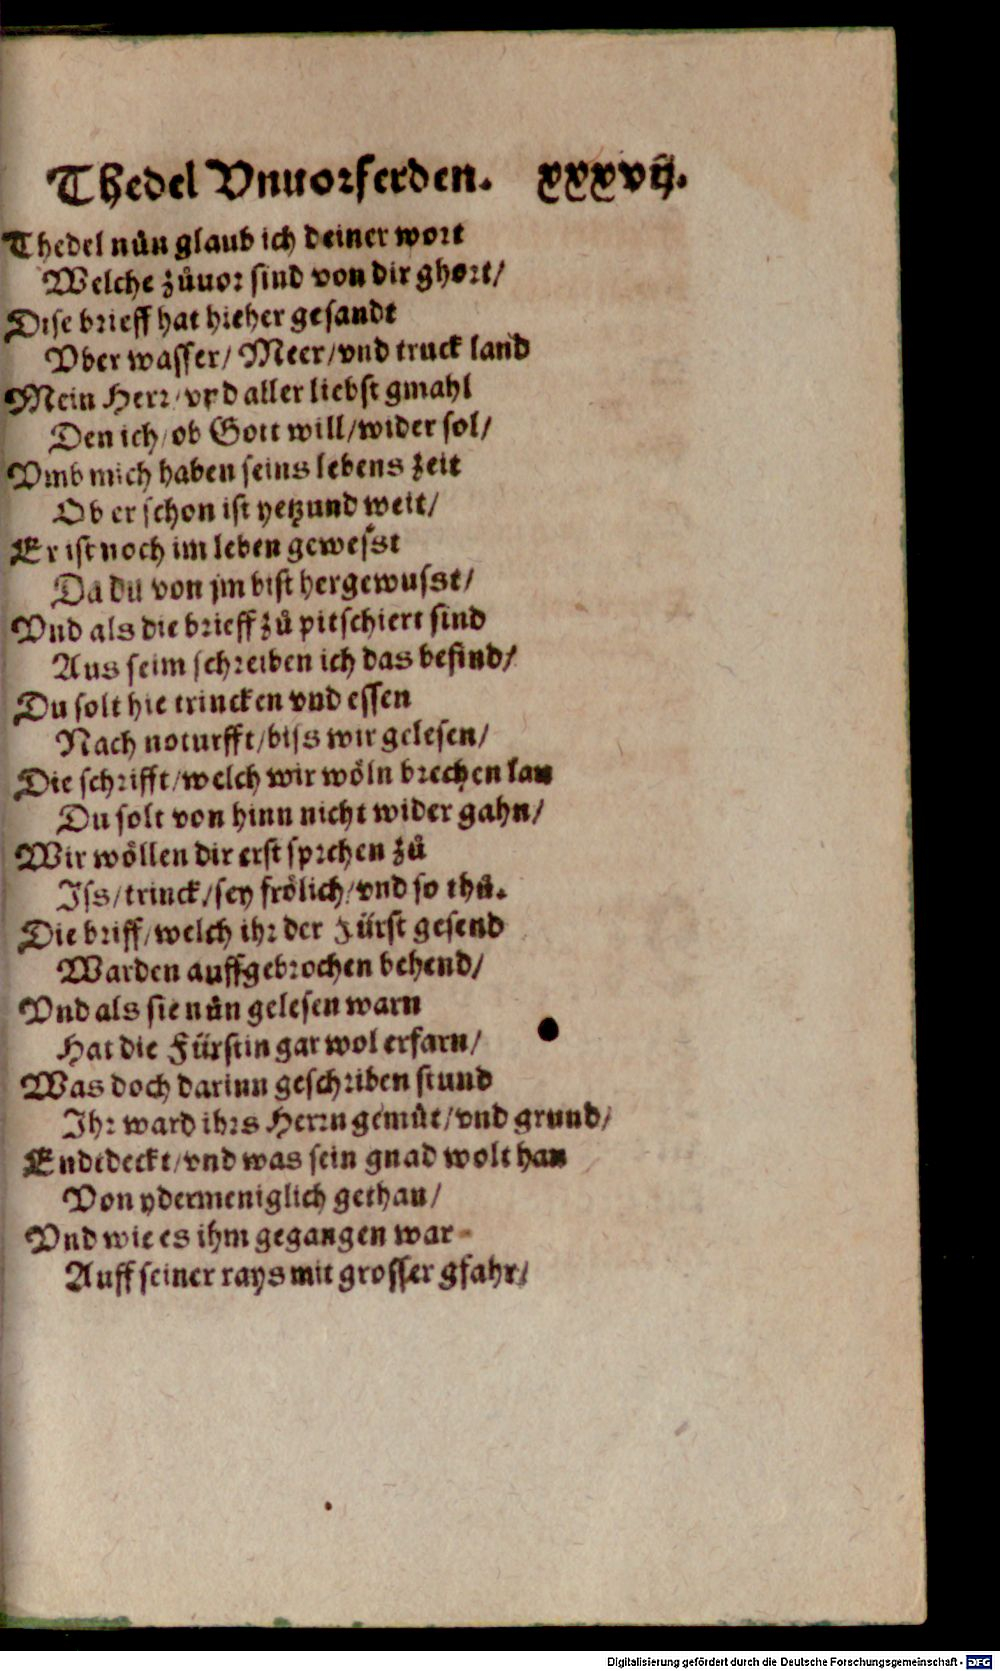 Thedel Vnuorferden. xxxvij.
Thedel nůn glaub ich deiner wort
Welche zůuor sind von dir ghort/
Dise brieff hat hieher gesandt
Vber wasser/ Meer/ vnd truck land
Mein Herr/ vnd aller liebst gmahl
Den ich/ ob Gott will/ wider sol/
Vmb mich haben seins lebens zeit
Ob er schon ist yetzund weit/
Er ist noch im leben gewesst
Da du von jm bist hergewusst/
Vnd als die brieff zů pitschiert sind
Aus seim schreiben ich das befind/
Du solt hie trincken vnd essen
Nach noturfft/ biss wir gelesen/
Die schrifft/ welch wir wöln brechen lan
Du solt von hinn nicht wider gahn/
Wir wöllen dir erst sprchen zů
Iss/ trinck/ sey frölich/ vnd so thů.
Die briff/ welch ihr der Fürst gesend
Warden auffgebrochen behend/
Vnd als sie nůn gelesen warn
Hat die Fürstin gar wol erfarn/
Was doch darinn geschriben stund
Ihr ward ihrs Herrn gemůt/ vnd grund/
Endtdeckt/ vnd was sein gnad wolt han
Von ydermeniglich gethan/
Vnd wie es ihm gegangen war
Auff seiner rays mit grosser gfahr/
Digitalisierung gefördert durch die Deutsche Forschungsgemeinschaft - DFG